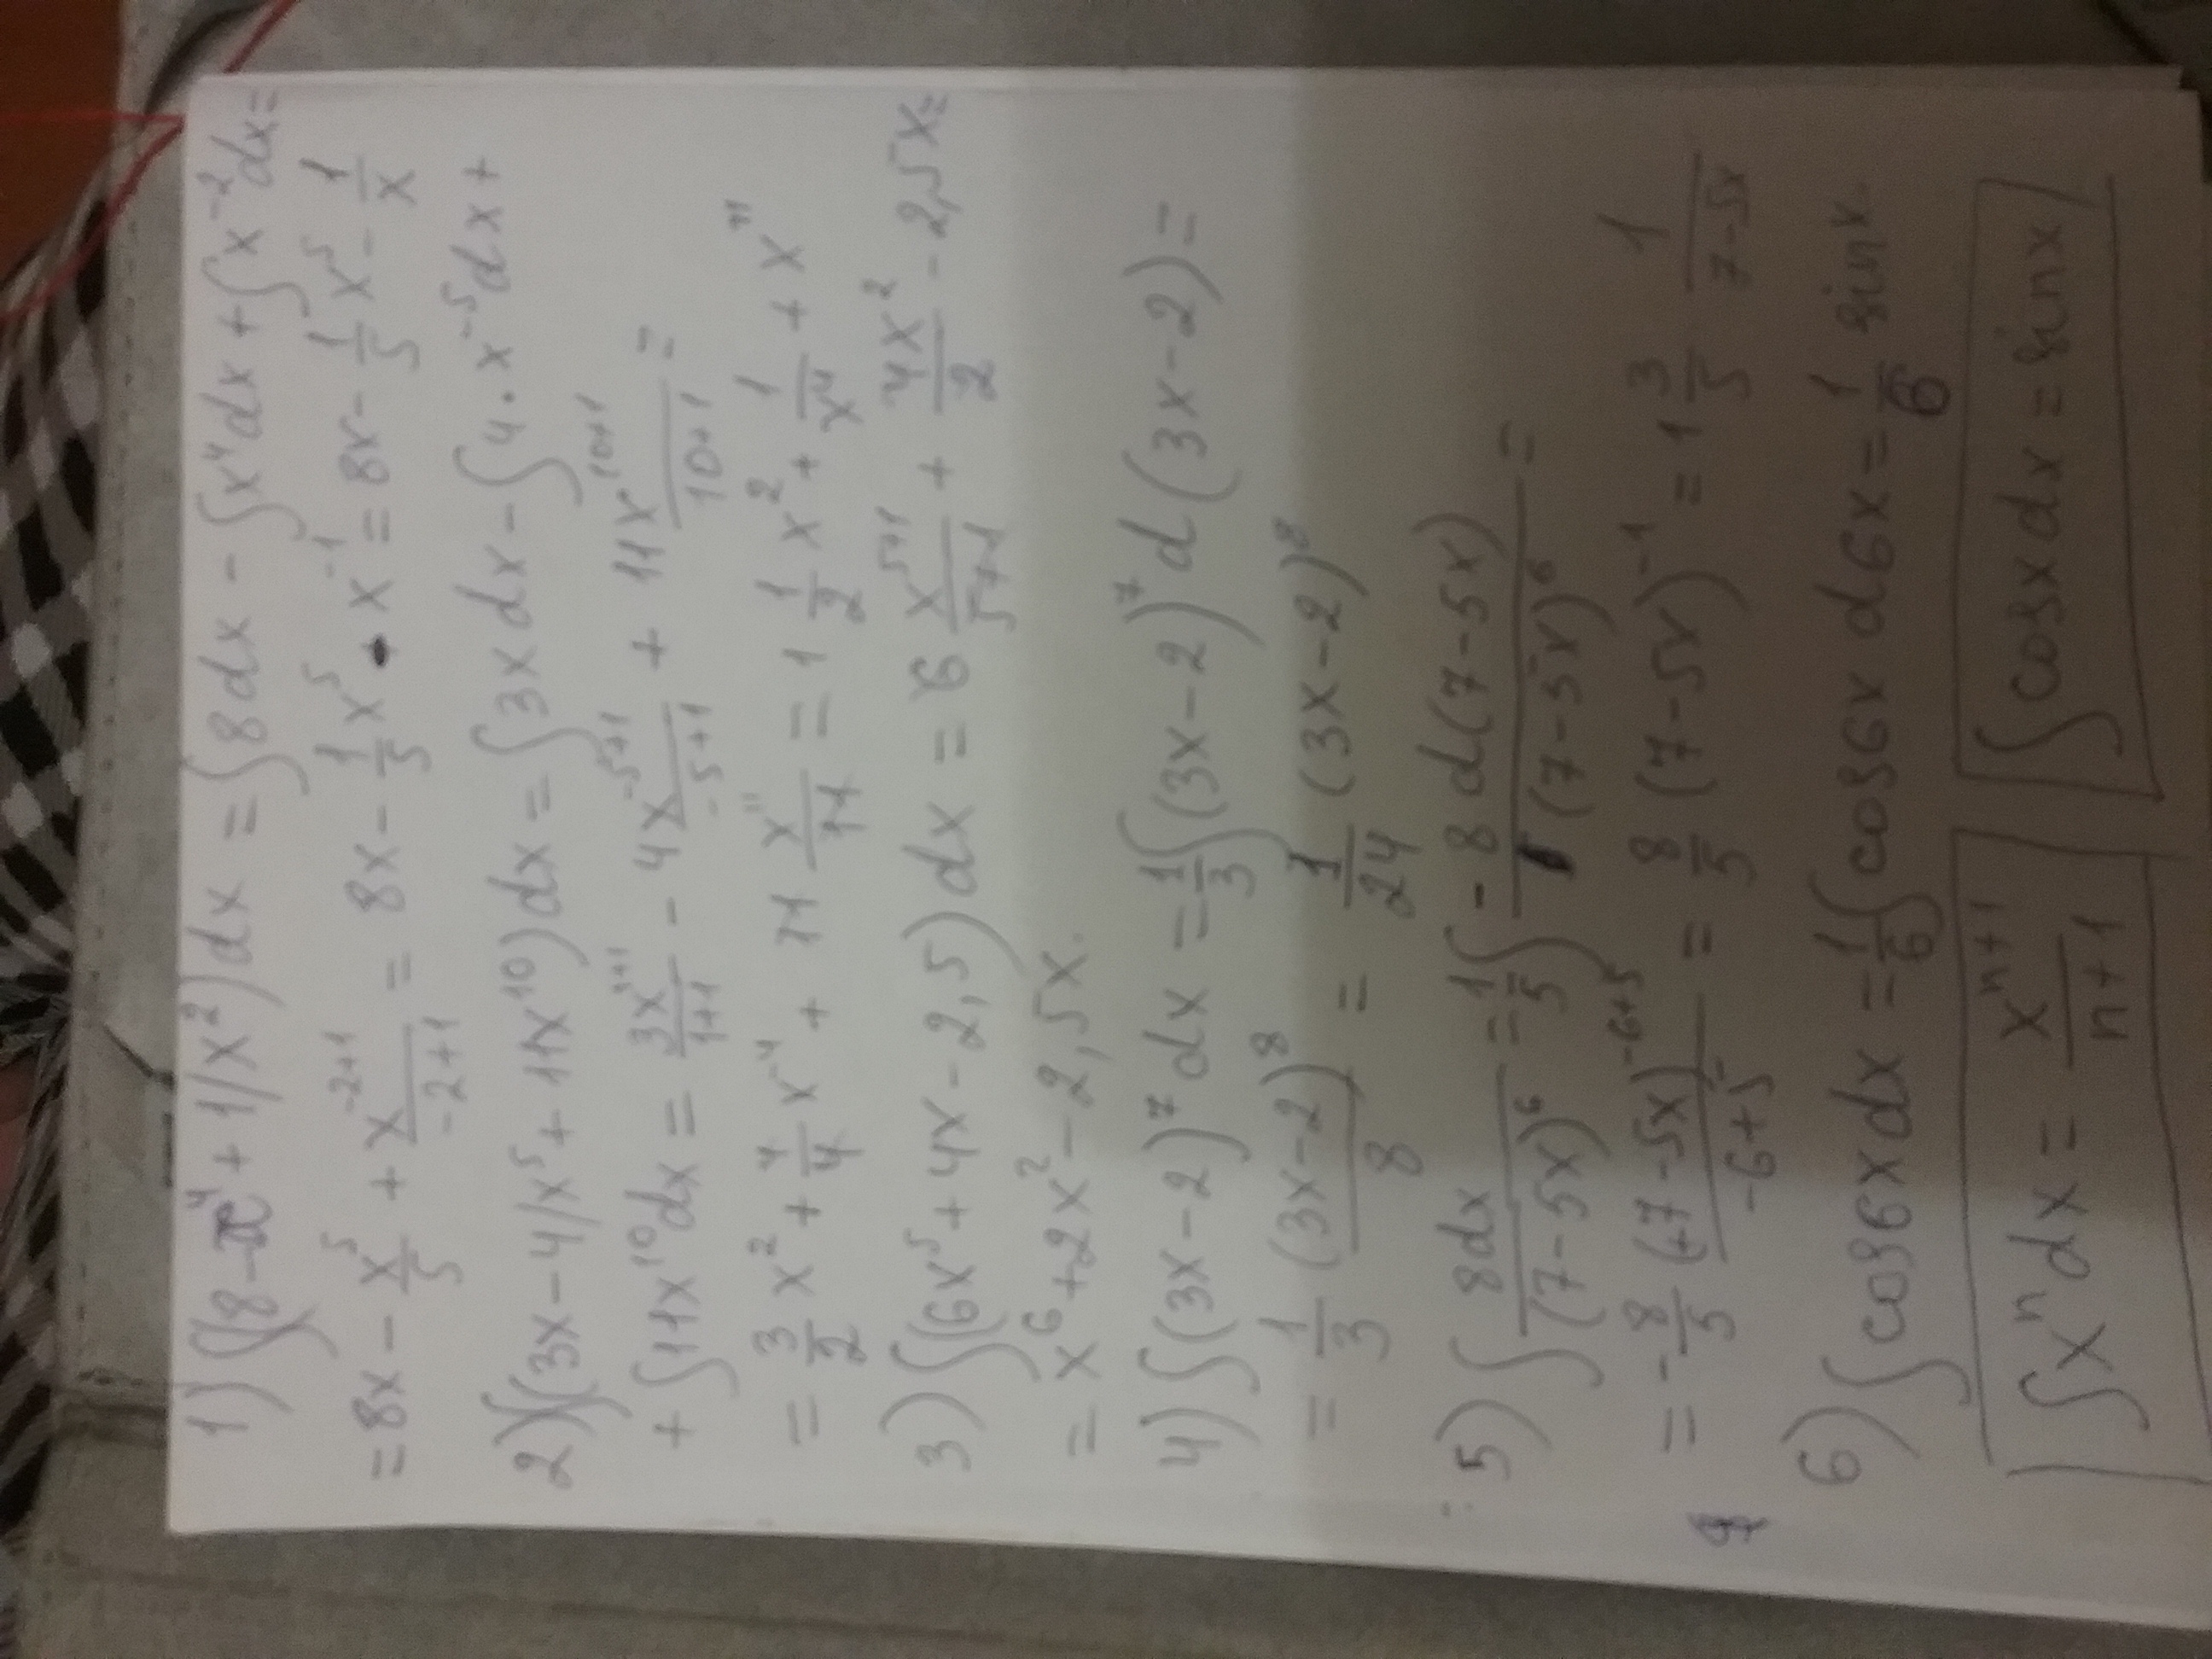 1) ∫(8-x⁴+1/x²)dx = ∫8dx - ∫x⁴dx + ∫x⁻²dx=
=8x - x⁵/5 + x⁻²⁺¹/-2+1 = 8x - 1/5 x⁵ · x⁻¹ = 8x - 1/5 x⁵ - 1/x
2) ∫(3x-4/x⁵+11x¹⁰)dx = ∫3xdx - ∫4·x⁻⁵dx+
+ ∫11x¹⁰dx = 3x¹⁺¹/1+1 - 4x⁻⁵⁺¹/-5+1 + 11x¹⁰⁺¹/10+1 =
= 3/2 x² + 4/4 x⁻⁴ + 11 x¹¹/11 = 1 1/2 x² + 1/x⁴ + x¹¹
3) ∫(6x⁵+4x-2,5)dx = 6 x⁵⁺¹/5+1 + 4x²/2 - 2,5x=
= x⁶+2x²-2,5x.
4) ∫(3x-2)⁷dx = 1/3 ∫(3x-2)⁷d(3x-2)=
= 1/3 (3x-2)⁸/8 = 1/24 (3x-2)⁸
5) ∫ 8dx/(7-5x)⁶ = 1/5 ∫ -8d(7-5x)/(7-5x)⁶ =
= -8/5 (+7-5x)⁻⁶⁺⁵/-6+5 = 8/5 (7-5x)⁻¹ = 1 3/5 1/7-5x
6) ∫cos6xdx = 1/6 ∫cos6x d6x = 1/6 sinx.
∫xⁿdx = xⁿ⁺¹/n+1 ∫cosxdx = sinx